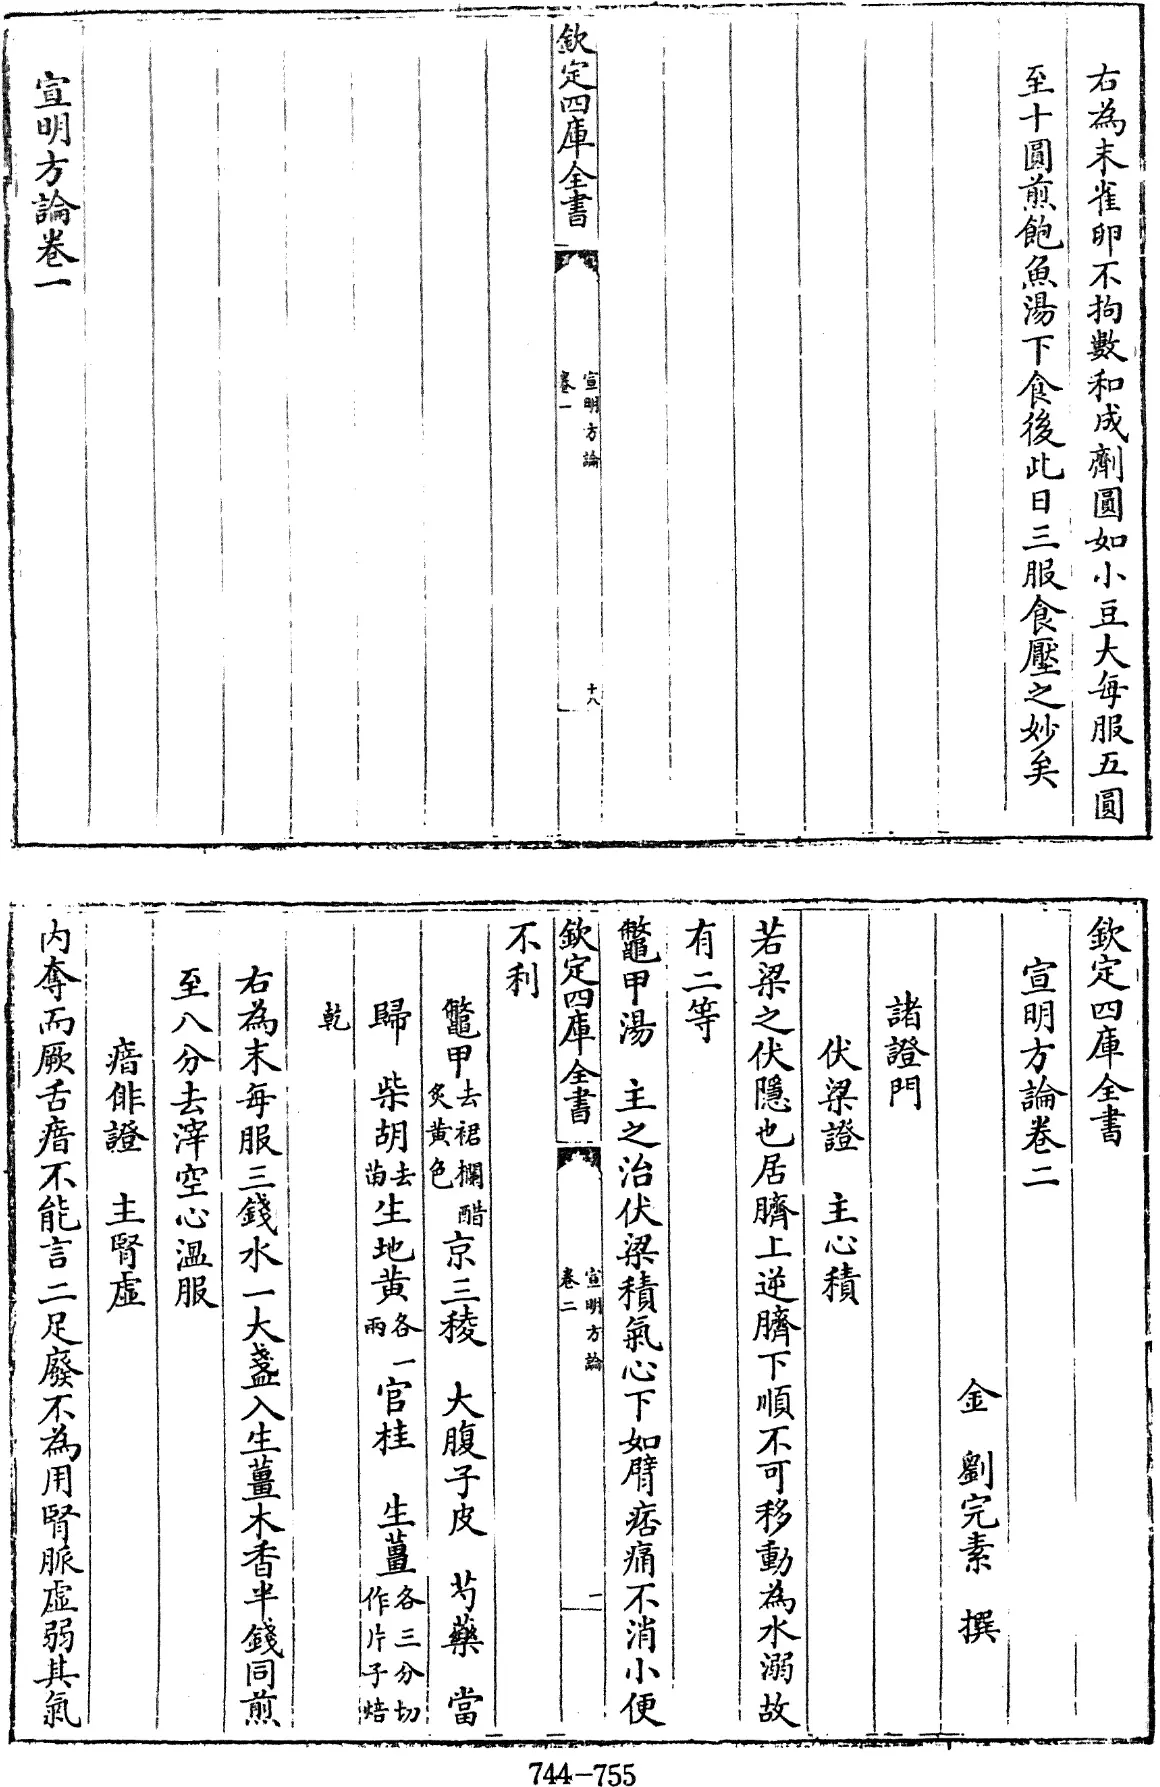 右為末雀卵不拘數和成劑圓如小豆大每服五圓
至十圓煎飽魚湯下食後此日三服食壓之妙矣
欽定四庫全書
宣明方論
卷一
十八
宣明方論卷一
欽定四庫全書
宣明方論卷二
金 劉完素 撰
諸證門
伏梁證 主心積
若梁之伏隱也居臍上逆臍下順不可移動為水溺故
有二等
鼈甲湯 主之治伏梁積氣心下如臂痞痛不消小便
欽定四庫全書
宣明方論
卷二
一
不利
鼈甲去裙欄醋炙黃色京三稜 大腹子皮 芍藥 當
歸 柴胡去苗生地黃各一兩官桂 生薑各三分切作片子焙
乾
右為末每服三錢水一大盞入生薑木香半錢同煎
至八分去滓空心溫服
瘖俳證 主腎虛
內奪而厥舌瘖不能言二足廢不為用腎脈虛弱其氣
744-755